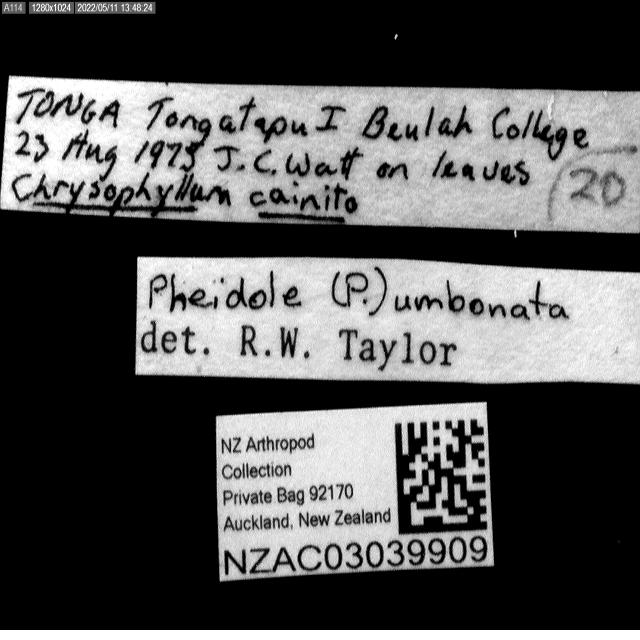 A114 1280x1024 2022/05/11 13:48:24
TONGA Tongatapu I Beulah College
23 Aug 1975 J.C. Watt on leaves
Chrysophyllum cainito
20
Pheidole (P.) umbonata
det. R.W. Taylor
NZ Arthropod
Collection
Private Bag 92170
Auckland, New Zealand
NZAC03039909